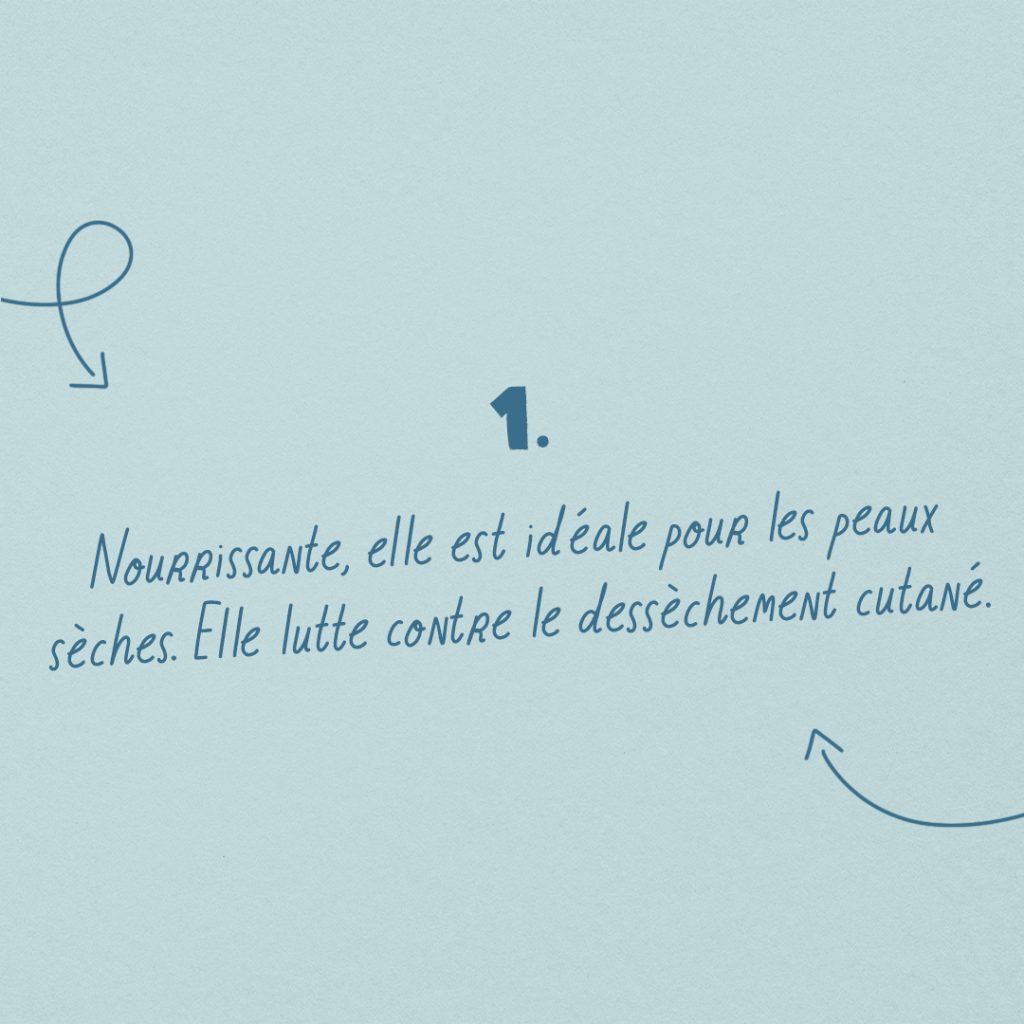 1.
Nourrissante, elle est idéale pour les peaux
sèches. Elle lutte contre le dessèchement cutané.